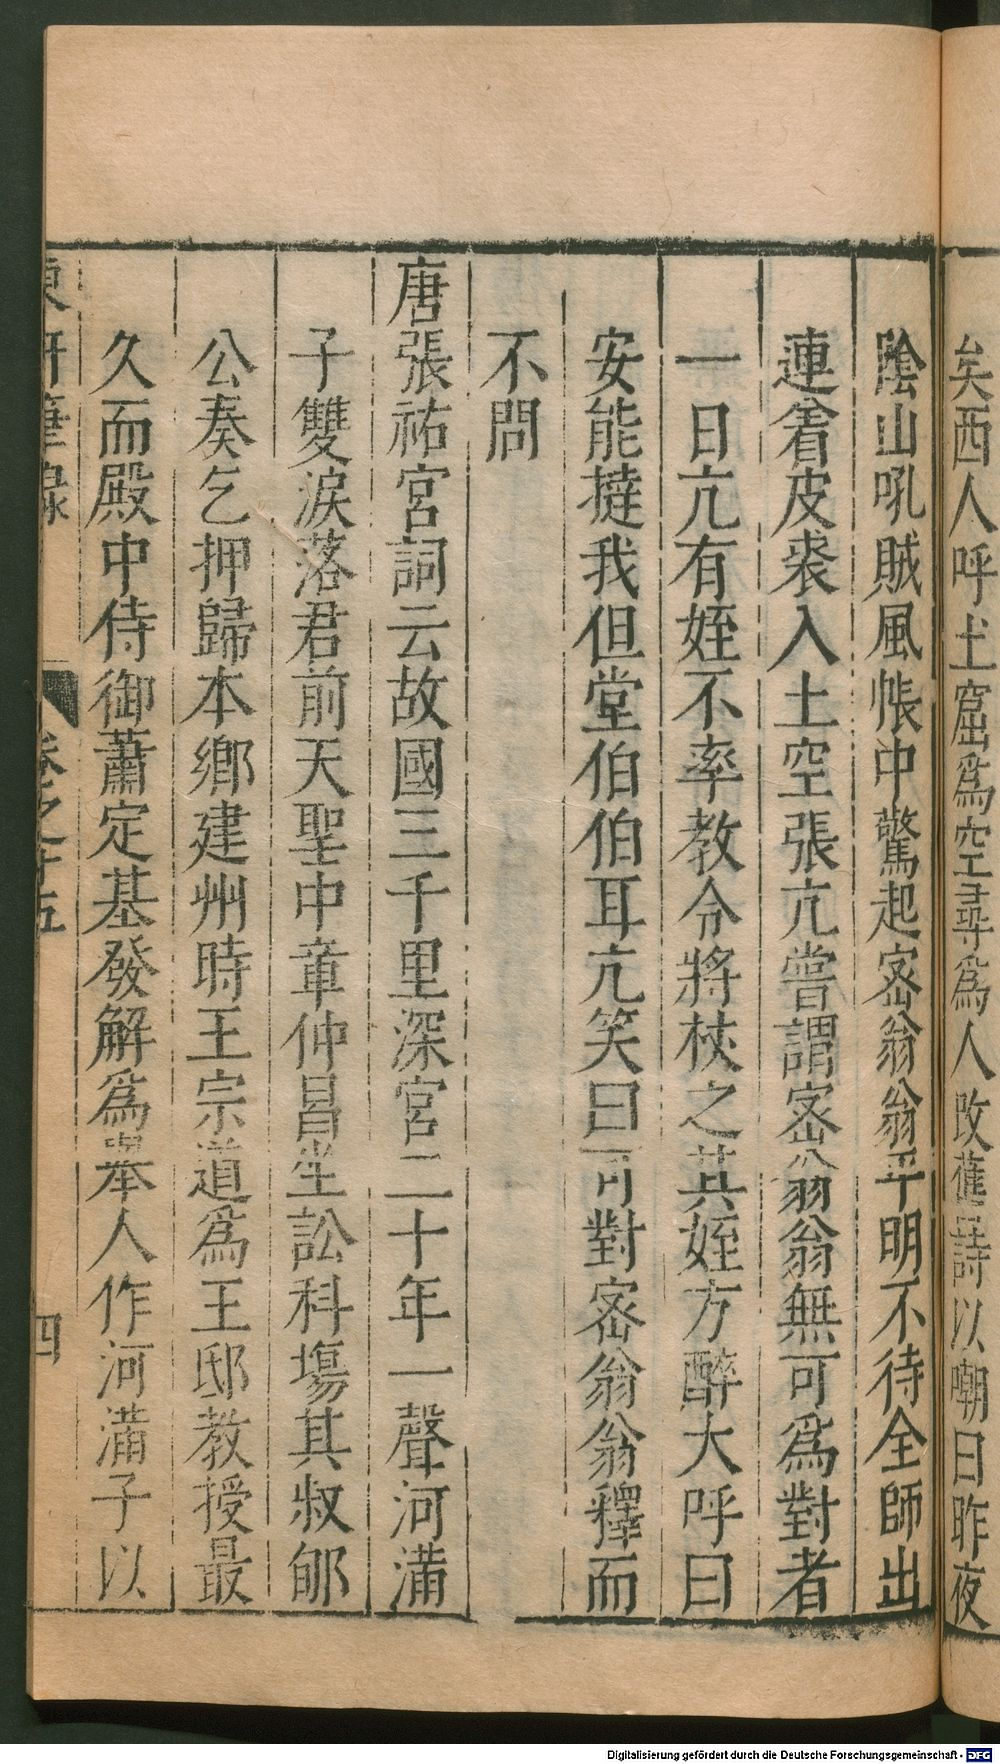 矣西人呼土窟爲空尋爲人改舊詩以嘲曰昨夜
陰山吼賊風帳中驚起宻翁翁平明不待全師出
連着皮裘入土空張亢嘗謂宻翁翁無可爲對者
一日亢有姪不率教令將杖之其姪方醉大呼曰
安能撻我但堂伯伯耳亢笑曰可對宻翁翁釋而
不問
唐張祐宮詞云故國三千里深宮二十年一聲河滿
子雙淚落君前天聖中章仲昌坐訟科塲其叔郇
公奏乞押歸本鄉建州時王宗道爲王邸教授最
久而殿中侍御蕭定基發解爲舉人作河滿子以
東軒筆錄 卷之十五 四
Digitalisierung gefördert durch die Deutsche Forschungsgemeinschaft - DFG